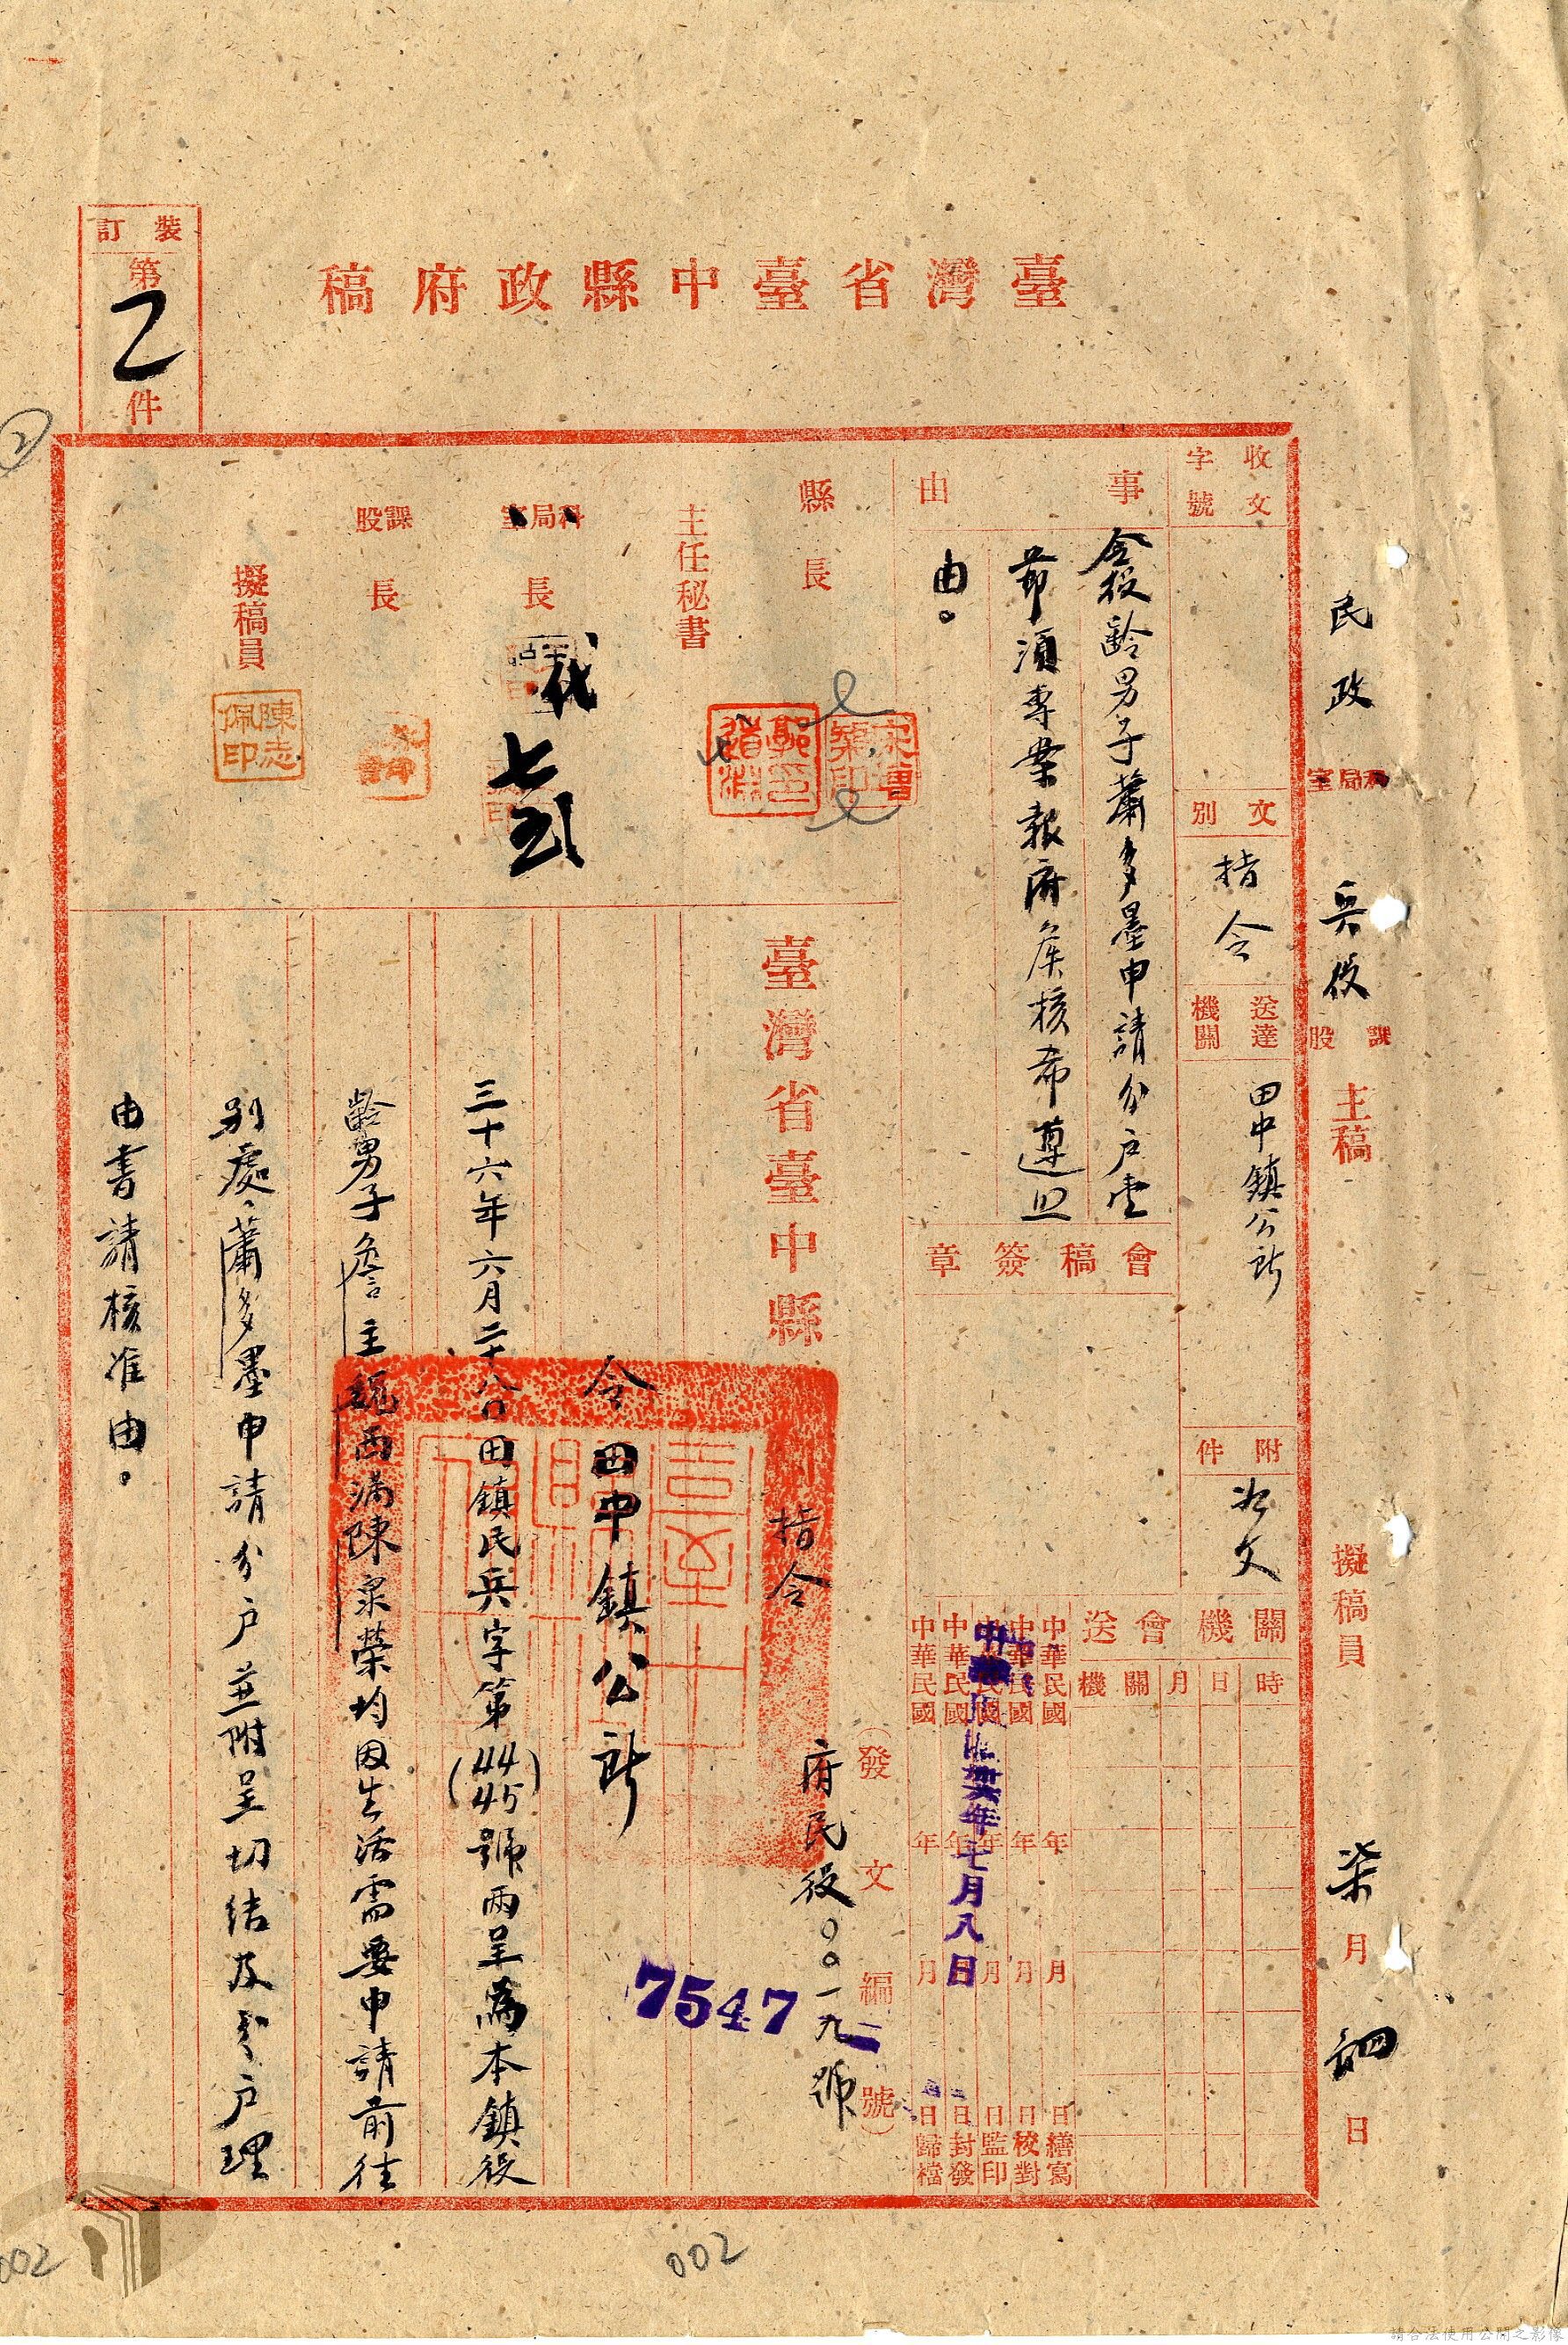 臺灣省臺中縣政府稿
裝訂
第
2
件
民政 科局室 兵役 課股 主稿 擬稿員 柒月四日
收文字號
文別 指令
送達機關 田中鎮公所
附件 如文
事由
令役齡男子蕭多墨申請分戶
節須專案報府候核希遵照
由。
縣長
主任秘書
科局室長
代
課股長
擬稿員
陳志佩印
會稿簽章
關機會送
時 日 月 關機
中華民國 年 月 日繕寫
中華民國 年 月 日校對
中華民國 年 月 日監印
中華民國 年 月 日封發
中華民國 年 月 日歸檔
年七月八日
(發文編號)
府民役〇〇一九號
7547
臺灣省臺中縣 指令
令田中鎮公所
三十六年六月二十八日田鎮民兵字第(44 45)號兩呈為本鎮役
齡男子詹主魏西滿陳泉榮均因生活需要申請前往
別處、蕭多墨申請分戶並附呈切結及分戶理
由書請核准由。
2
002
002
請合法使用公開之影像